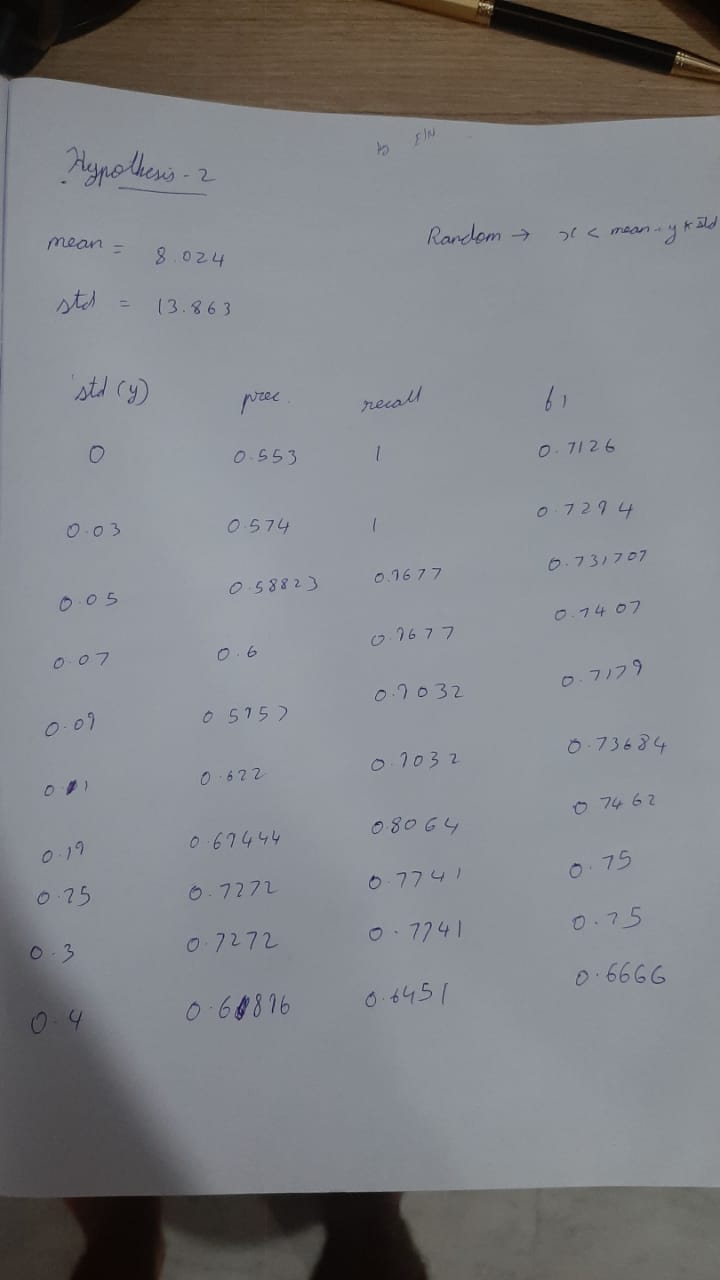 Hypothesis - 2
mean = 8.024
Random → x < mean - y * std
std = 13.863
std (y) prec. recall f1
0 0.553 1 0.7126
0.03 0.574 1 0.7294
0.05 0.58823 0.9677 0.731707
0.07 0.6 0.9677 0.7407
0.09 0.5957 0.9032 0.7179
0.11 0.622 0.9032 0.73684
0.19 0.69444 0.8064 0.7462
0.25 0.7272 0.7741 0.75
0.3 0.7272 0.7741 0.75
0.4 0.6896 0.6451 0.6666